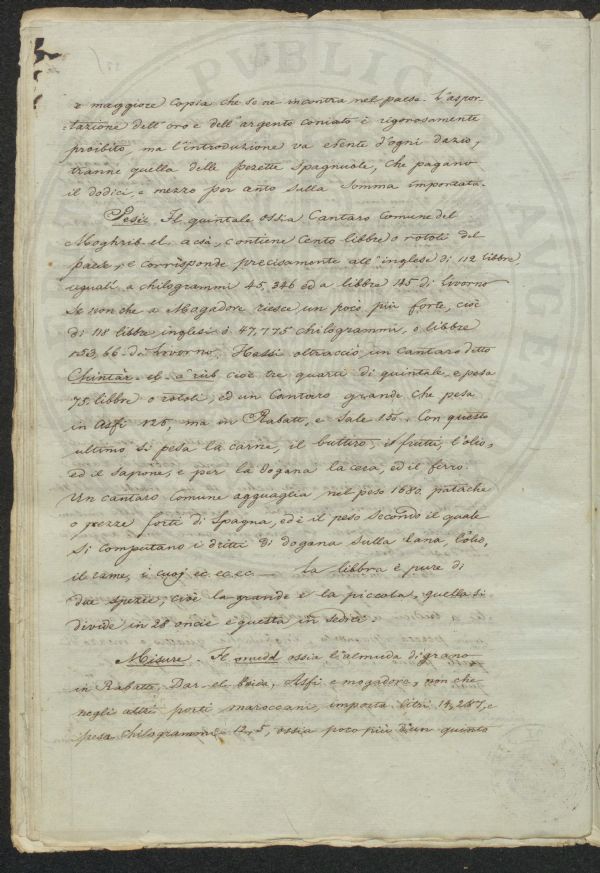 e maggiore copia che se ne incontra nel paese. L'aspor-
tazione dell'oro e dell'argento coniato è rigorosamente
proibito, ma l'introduzione va esente d'ogni dazio,
tranne quella delle pezette Spagnuole, che pagano
il dodici e mezzo per cento sulla Somma importata.
Pesi. Il quintale, ossia Cantaro Comune del
Moghrib-el-acsà, contiene Cento libbre o rotoli del
paese, e corrisponde precisamente all'inglese di 112 libbre
uguali a chilogrammi 45,346 ed a libbre 145 di Livorno
Se non che a Mogadore riesce un poco più forte, cioè
di 118 libbre inglesi o 47,775 chilogrammi, o libbre
153,66 di Livorno. Hassi oltracciò un Cantaro detto
Chintàr-el-a'rùb cioè tre quarti di quintale, e pesa
75 libbre o rotoli, ed un Cantaro grande che pesa
in Asfi 125, ma in Rabatt, e Sale 150. Con questo
ultimo si pesa la carne, il butiro, i frutti, l'olio,
ed il sapone, e per la dogana la cera, ed il ferro.
Un cantaro comune agguaglia nel peso 1680 patache
o pezze forti di Spagna, ed è il peso secondo il quale
si computano i dritti di dogana sulla lana l'olio,
il rame, i cuoj ec. ec. ec. — La libbra è pure di
due spezie, cioè la grande e la piccola, quella si
divide in 28 oncie e questa in sedici.
Misure. Il muedd ossia l'almuda di grano
in Rabatt, Dar-el-beica, Asfi e mogadore, non che
negli altri porti maroccani, importa litri 14,287, e
pesa chilogrammi 12,5, ossia poco più d'un quinto